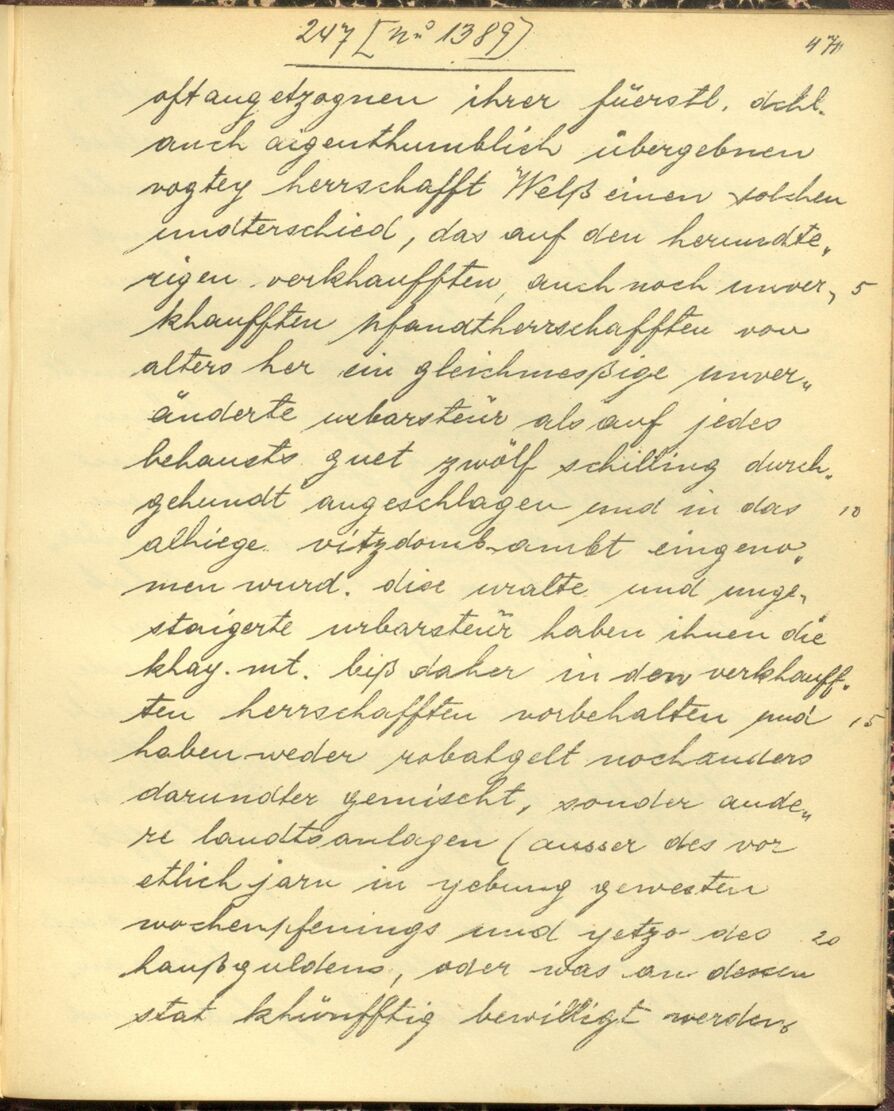 247 [nº 1389]
47
oftangetzognen ihrer füerstl. dchl.
auch aigenthumblich übergebnen
vogtey herrschafft Welß einen solchen
undterschied, das auf den herundte„
rigen verkhaufften, auch noch unver„ 5
khaufften pfandtherrschafften von
alters her ein gleichmesßige unver„
änderte urbarsteür als auf jedes
behausts guet zwölf schilling durch„
gehundt angeschlagen und in das 10
alhiege vitzdomb ambt eingeno„
men wurd. dise uralte und unge„
staigerte urbarsteür haben ihnen die
khay. mt. biß daher in den verkhauff„
ten herrschafften vorbehalten und 15
haben weder robatgelt noch anders
darundter gemischt, sonder ande„
re landtsanlagen (ausser des vor
etlich jarn in yebung gewesten
wochenpfenings und yetzo des 20
haußguldens, oder was an dessen
stat khünfftig bewilligt werden